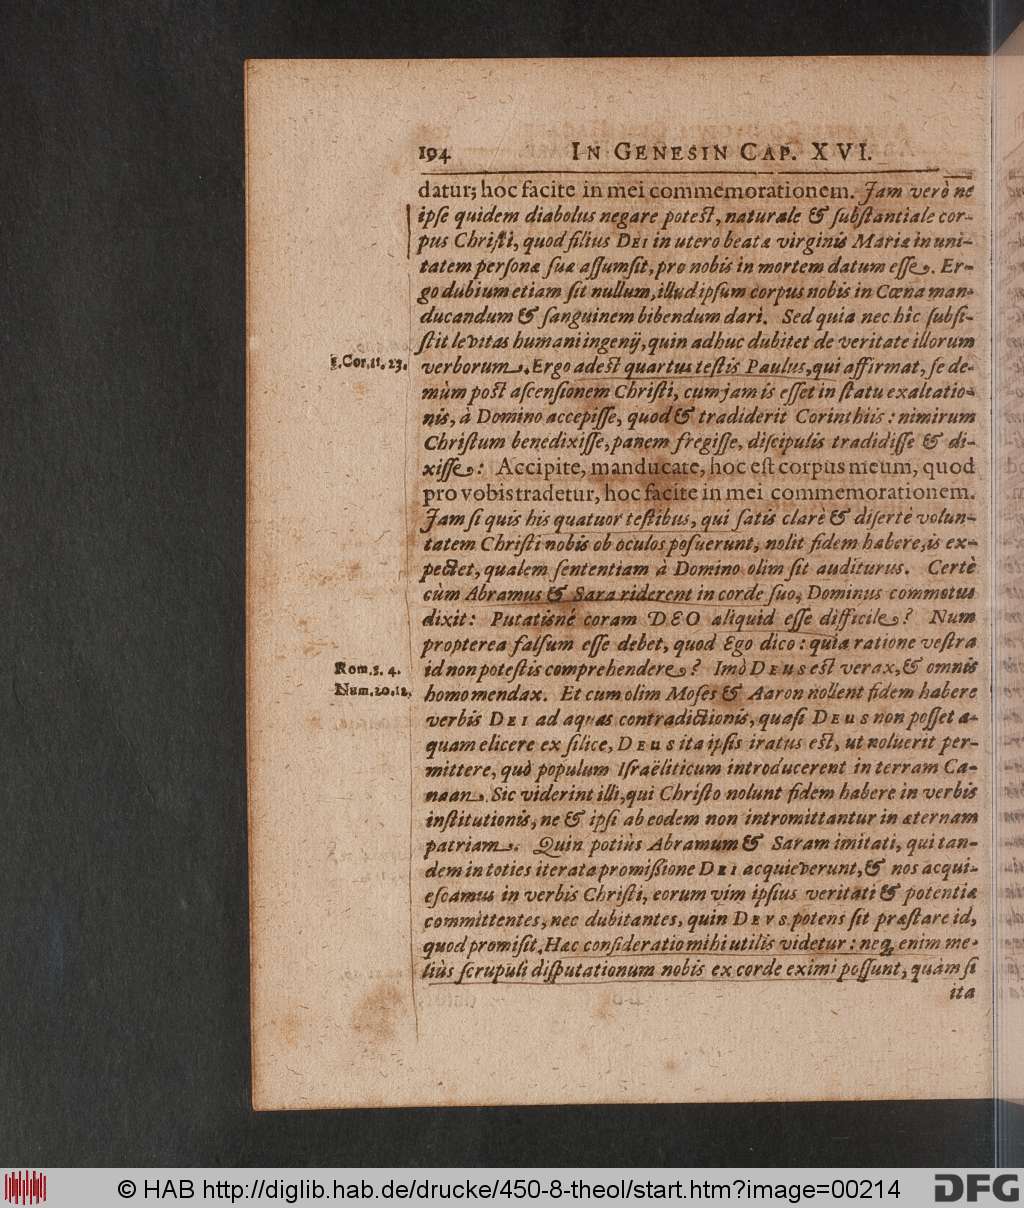 194 IN GENESIN CAP. XVI.
datur; hoc facite in mei commemorationem. Jam verò ne
ipſe quidem diabolus negare poteſt, naturale & ſubſtantiale cor-
pus Chriſti, quod filius DEI in utero beatæ virginis Mariæ in uni-
tatem perſonæ ſuæ aſſumſit, pro nobis in mortem datum eſſe. Er-
go dubium etiam ſit nullum, illud ipſum corpus nobis in Cœna man-
ducandum & ſanguinem bibendum dari. Sed quia nec hîc ſubſi-
ſtit levitas humani ingenij, quin adhuc dubitet de veritate illorum
1. Cor. 11. 23. verborum. Ergo adeſt quartus teſtis Paulus, qui affirmat, ſe de-
mùm poſt aſcenſionem Chriſti, cum jam is eſſet in ſtatu exaltatio-
nis, à Domino accepiſſe, quod & tradiderit Corinthiis: nimirum
Chriſtum benedixiſſe, panem fregiſſe, diſcipulis tradidiſſe & di-
xiſſe: Accipite, manducate, hoc eſt corpus meum, quod
pro vobis tradetur, hoc facite in mei commemorationem.
Jam ſi quis his quatuor teſtibus, qui ſatis clarè & diſertè volun-
tatem Chriſti nobis ob oculos poſuerunt, nolit fidem habere, is ex-
pectet, qualem ſententiam à Domino olim ſit auditurus. Certè
cùm Abramus & Sara riderent in corde ſuo, Dominus commotus
dixit: Putatisné coram DEO aliquid eſſe difficile? Num
propterea falſum eſſe debet, quod Ego dico: quia ratione veſtra
Rom. 3. 4. id non poteſtis comprehendere? Imò DEUS eſt verax, & omnis
Num. 20. 12. homo mendax. Et cum olim Moſes & Aaron nollent fidem habere
verbis DEI ad aquas contradictionis, quaſi DEUS non poſſet a-
quam elicere ex ſilice, DEUS ita ipſis iratus eſt, ut noluerit per-
mittere, quò populum Iſraëliticum introducerent in terram Ca-
naan. Sic viderint illi, qui Chriſto nolunt fidem habere in verbis
inſtitutionis, ne & ipſi ab eodem non intromittantur in æternam
patriam. Quin potiùs Abramum & Saram imitati, qui tan-
dem in toties iterata promiſſione DEI acquieverunt, & nos acqui-
eſcamus in verbis Chriſti, eorum vim ipſius veritati & potentiæ
committentes, nec dubitantes, quin DEVS potens ſit præſtare id,
quod promiſit. Hæc conſideratio mihi utilis videtur: neq; enim me-
liùs ſcrupuli diſputationum nobis ex corde eximi poſſunt, quàm ſi
ita
© HAB http://diglib.hab.de/drucke/450-8-theol/start.htm?image=00214
DFG